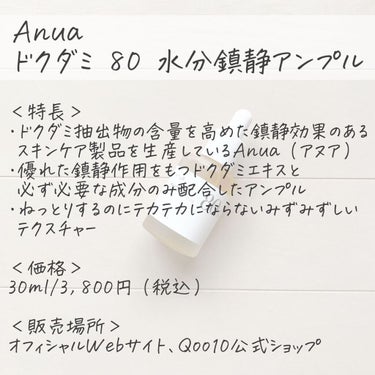 Anua
ドクダミ 80 水分鎮静アンプル
＜特長＞
・ドクダミ抽出物の含量を高めた鎮静効果のある
スキンケア製品を生産しているAnua（アヌア）
・優れた鎮静作用をもつドクダミエキスと
必ず必要な成分のみ配合したアンプル
・ねっとりするのにテカテカにならないみずみずしい
テクスチャー
＜価格＞
30ml/3,800円（税込）
＜販売場所＞
オフィシャルWebサイト、Qoo10公式ショップ